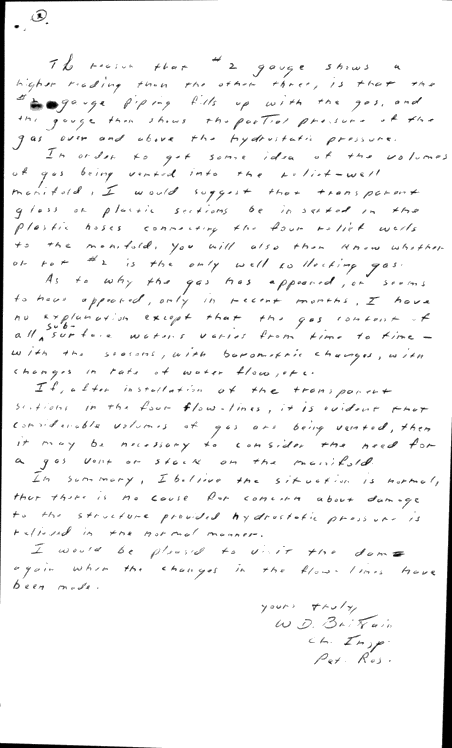 2.
The reason that #2 gauge shows a
higher reading than the other three, is that the
#2 gauge piping fills up with the gas, and
the gauge then shows the partial pressure of the
gas over and above the hydrostatic pressure.
In order to get some idea of the volumes
of gas being vented into the relief-well
manifold, I would suggest that transparent
glass or plastic sections be inserted in the
plastic hoses connecting the four relief wells
to the manifold. You will also then know whether
or not #2 is the only well collecting gas.
As to why the gas has appeared, or seems
to have appeared, only in recent months, I have
no explanation except that the gas content of
all sub-surface waters varies from time to time -
with the seasons, with barometric changes, with
changes in rate of water flow, etc.
If, after installation of the transparent
sections in the four flow-lines, it is evident that
considerable volumes of gas are being vented, then
it may be necessary to consider the need for
a gas vent or stack on the manifold.
In summary, I believe the situation is normal,
that there is no cause for concern about damage
to the structure provided hydrostatic pressure is
relieved in the normal manner.
I would be pleased to visit the dam
again when the changes in the flow-lines have
been made.
yours truly,
W D. Brittain
Ch. Insp.
Pet. Res.